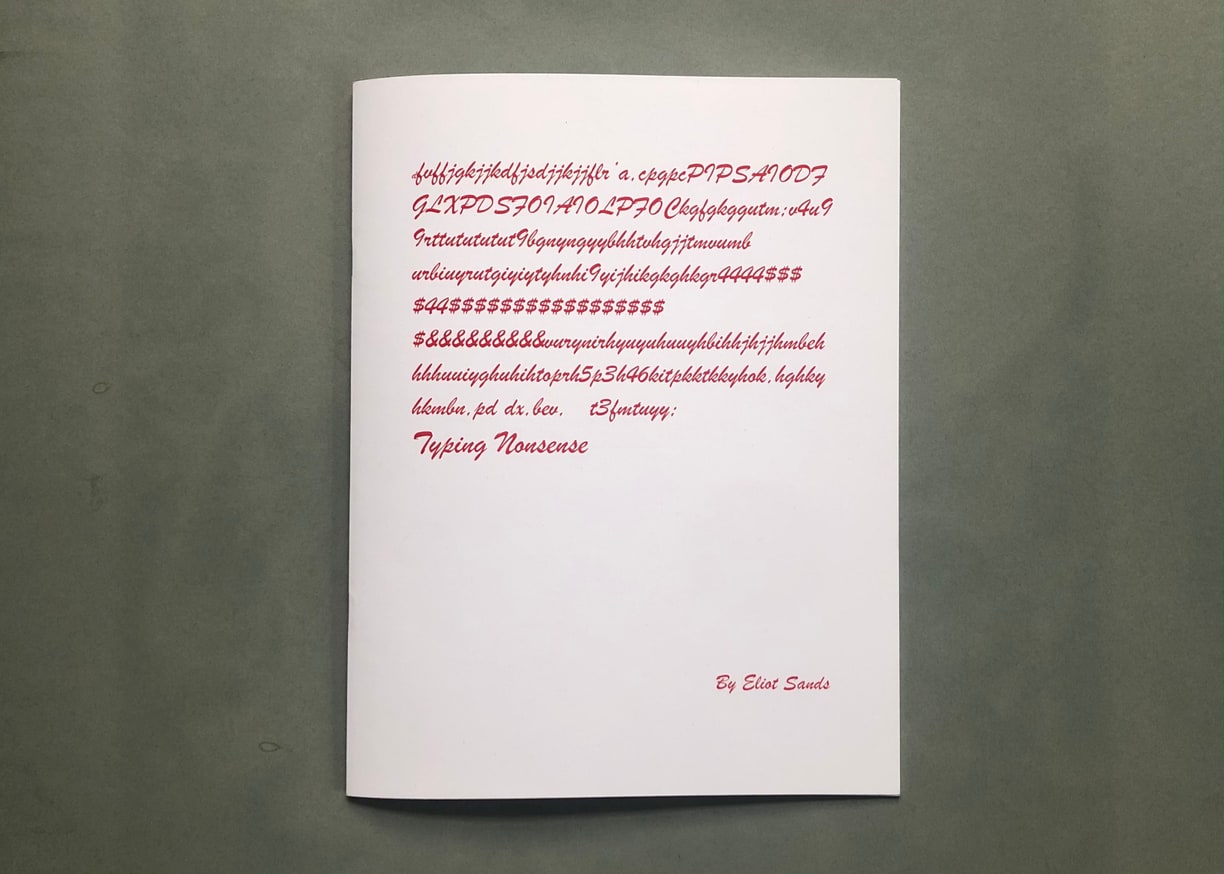 fvffjgkjjkdfjsdjjkjjflr'a,cpgpcPIPSAIODF
GLXPDSFOIAIOLPFOCkgfgkggutm;v4u9
9rttutututut9bgnyngyybhhtvhgjjtmvumb
urbiuyrutgiyiytyhnhi9yijhikgkghkgr4444$$$
$44$$$$$$$$$$$$$$$$$
$&&&&&&&&&vurynirhyuyuhuuyhbihhjhjjhmbeh
hhhuuiyghuhihtoprh5p3h46kitpkktkkyhok,hghky
hkmbn,pd dx,bev, t3fmtuyy;
Typing Nonsense
By Eliot Sands